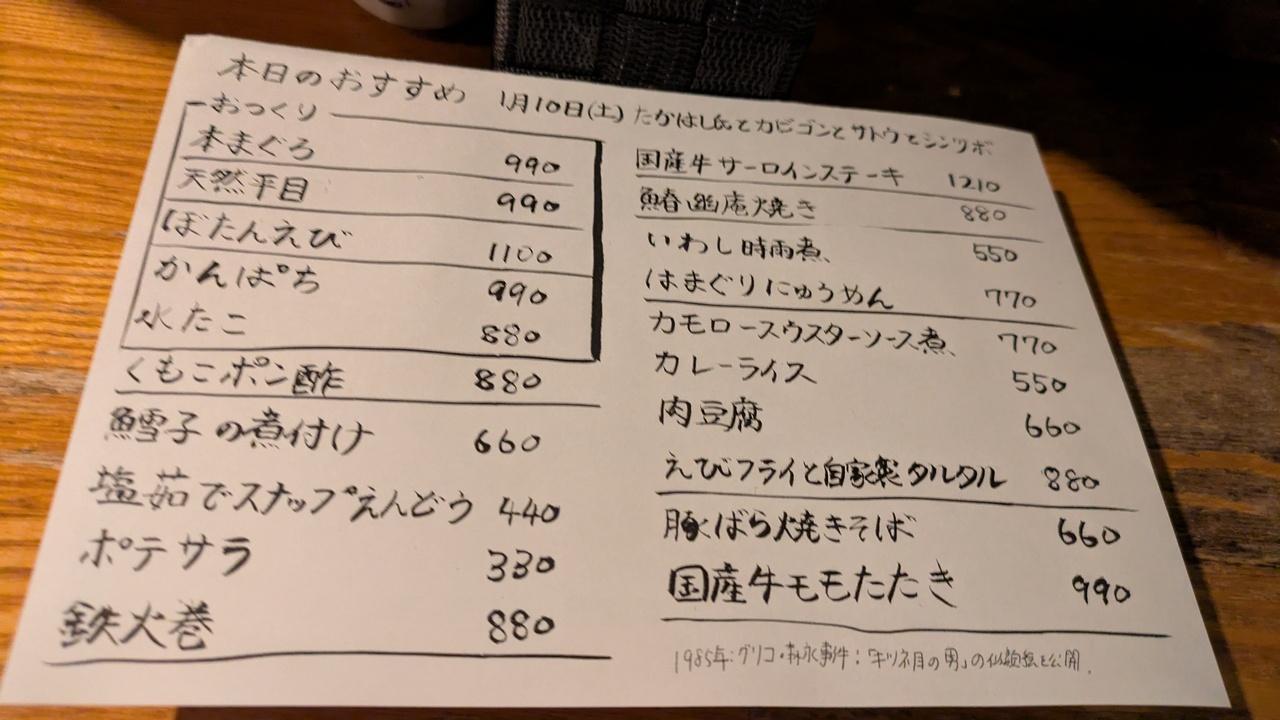 本日のおすすめ 1月10日(土) たかはし氏とカビゴンとサトウとシンツボ
おつくり
本まぐろ 990
天然平目 990
ぼたんえび 1100
かんぱち 990
水たこ 880
くもこポン酢 880
鱈子の煮付け 660
塩茹でスナップえんどう 440
ポテサラ 330
鉄火巻 880
国産牛サーロインステーキ 1210
鰆幽庵焼き 880
いわし時雨煮 550
はまぐりにゅうめん 770
カモロースウスターソース煮 770
カレーライス 550
肉豆腐 660
えびフライと自家製タルタル 880
豚ばら焼きそば 660
国産牛モモたたき 990
1985年:グリコ・森永事件:「キツネ目の男」の似顔絵を公開.